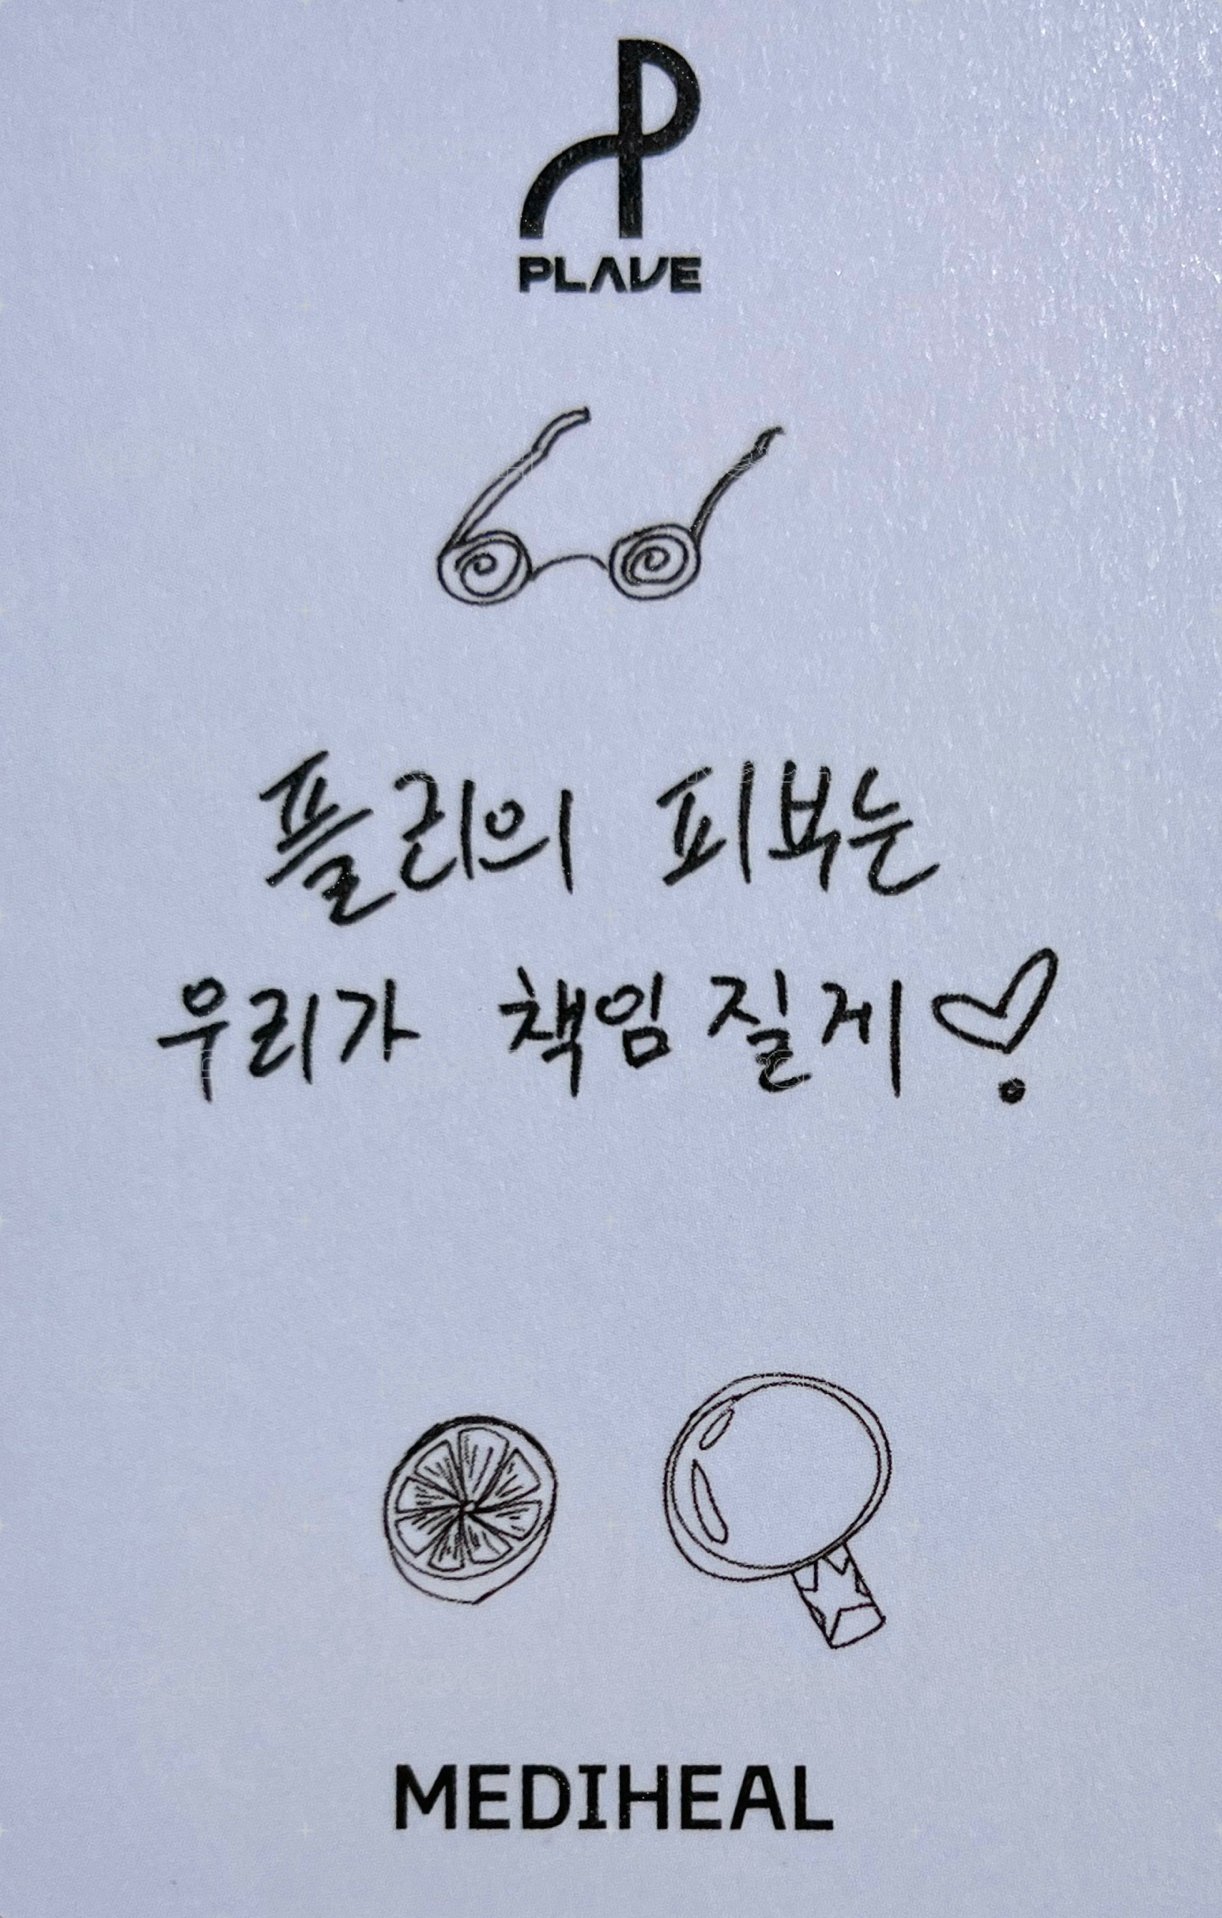 PLAVE
플리의 피부는
우리가 책임질게♡
MEDIHEAL